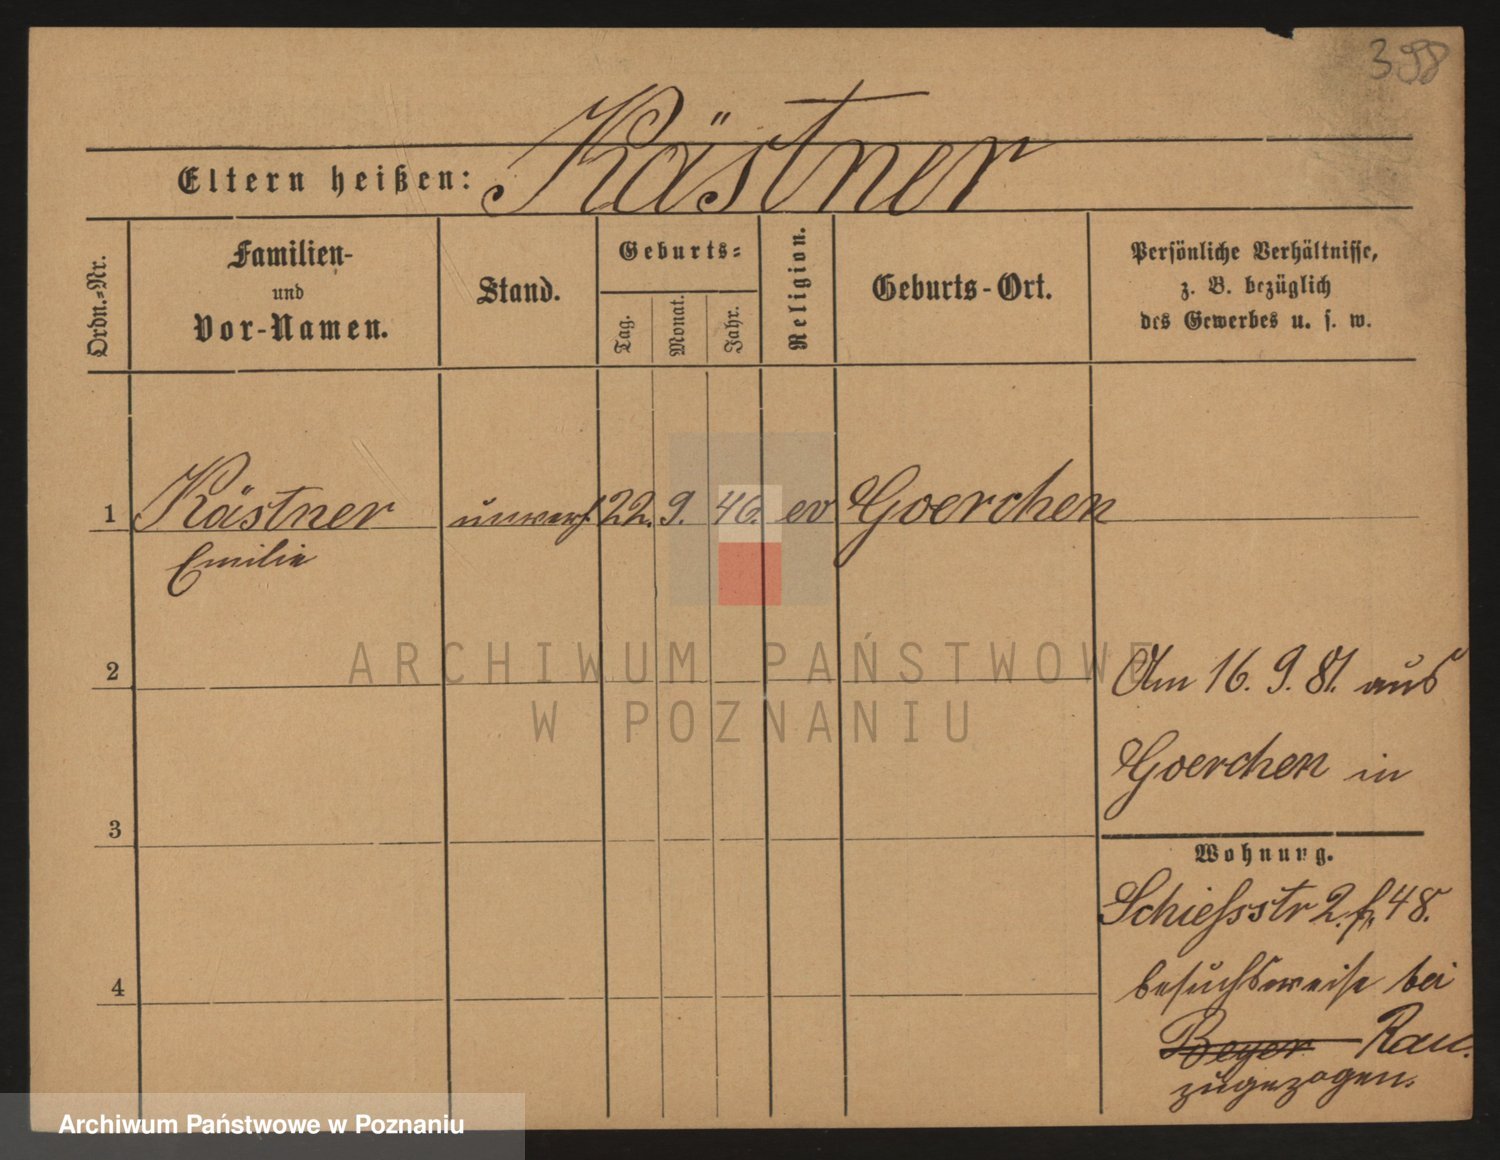 398
Eltern heißen: Kästner
Ordn.-Nr.
Familien-
und
Vor-Namen.
Stand.
Geburts-
Tag.
Monat.
Jahr.
Religion.
Geburts-Ort.
Persönliche Verhältnisse,
z. B. bezüglich
des Gewerbes u. s. w.
1 Kästner 22. 9. 46. ev Goerchen
Emilie
ARCHIWUM PAŃSTWOWE
W POZNANIU
2
Am 16. 9. 81. aus
Goerchen in
3
Wohnung.
Schiessstr 2. 48.
besuchsweise bei
4
Beyer Rau.
zugezogen.
Archiwum Państwowe w Poznaniu